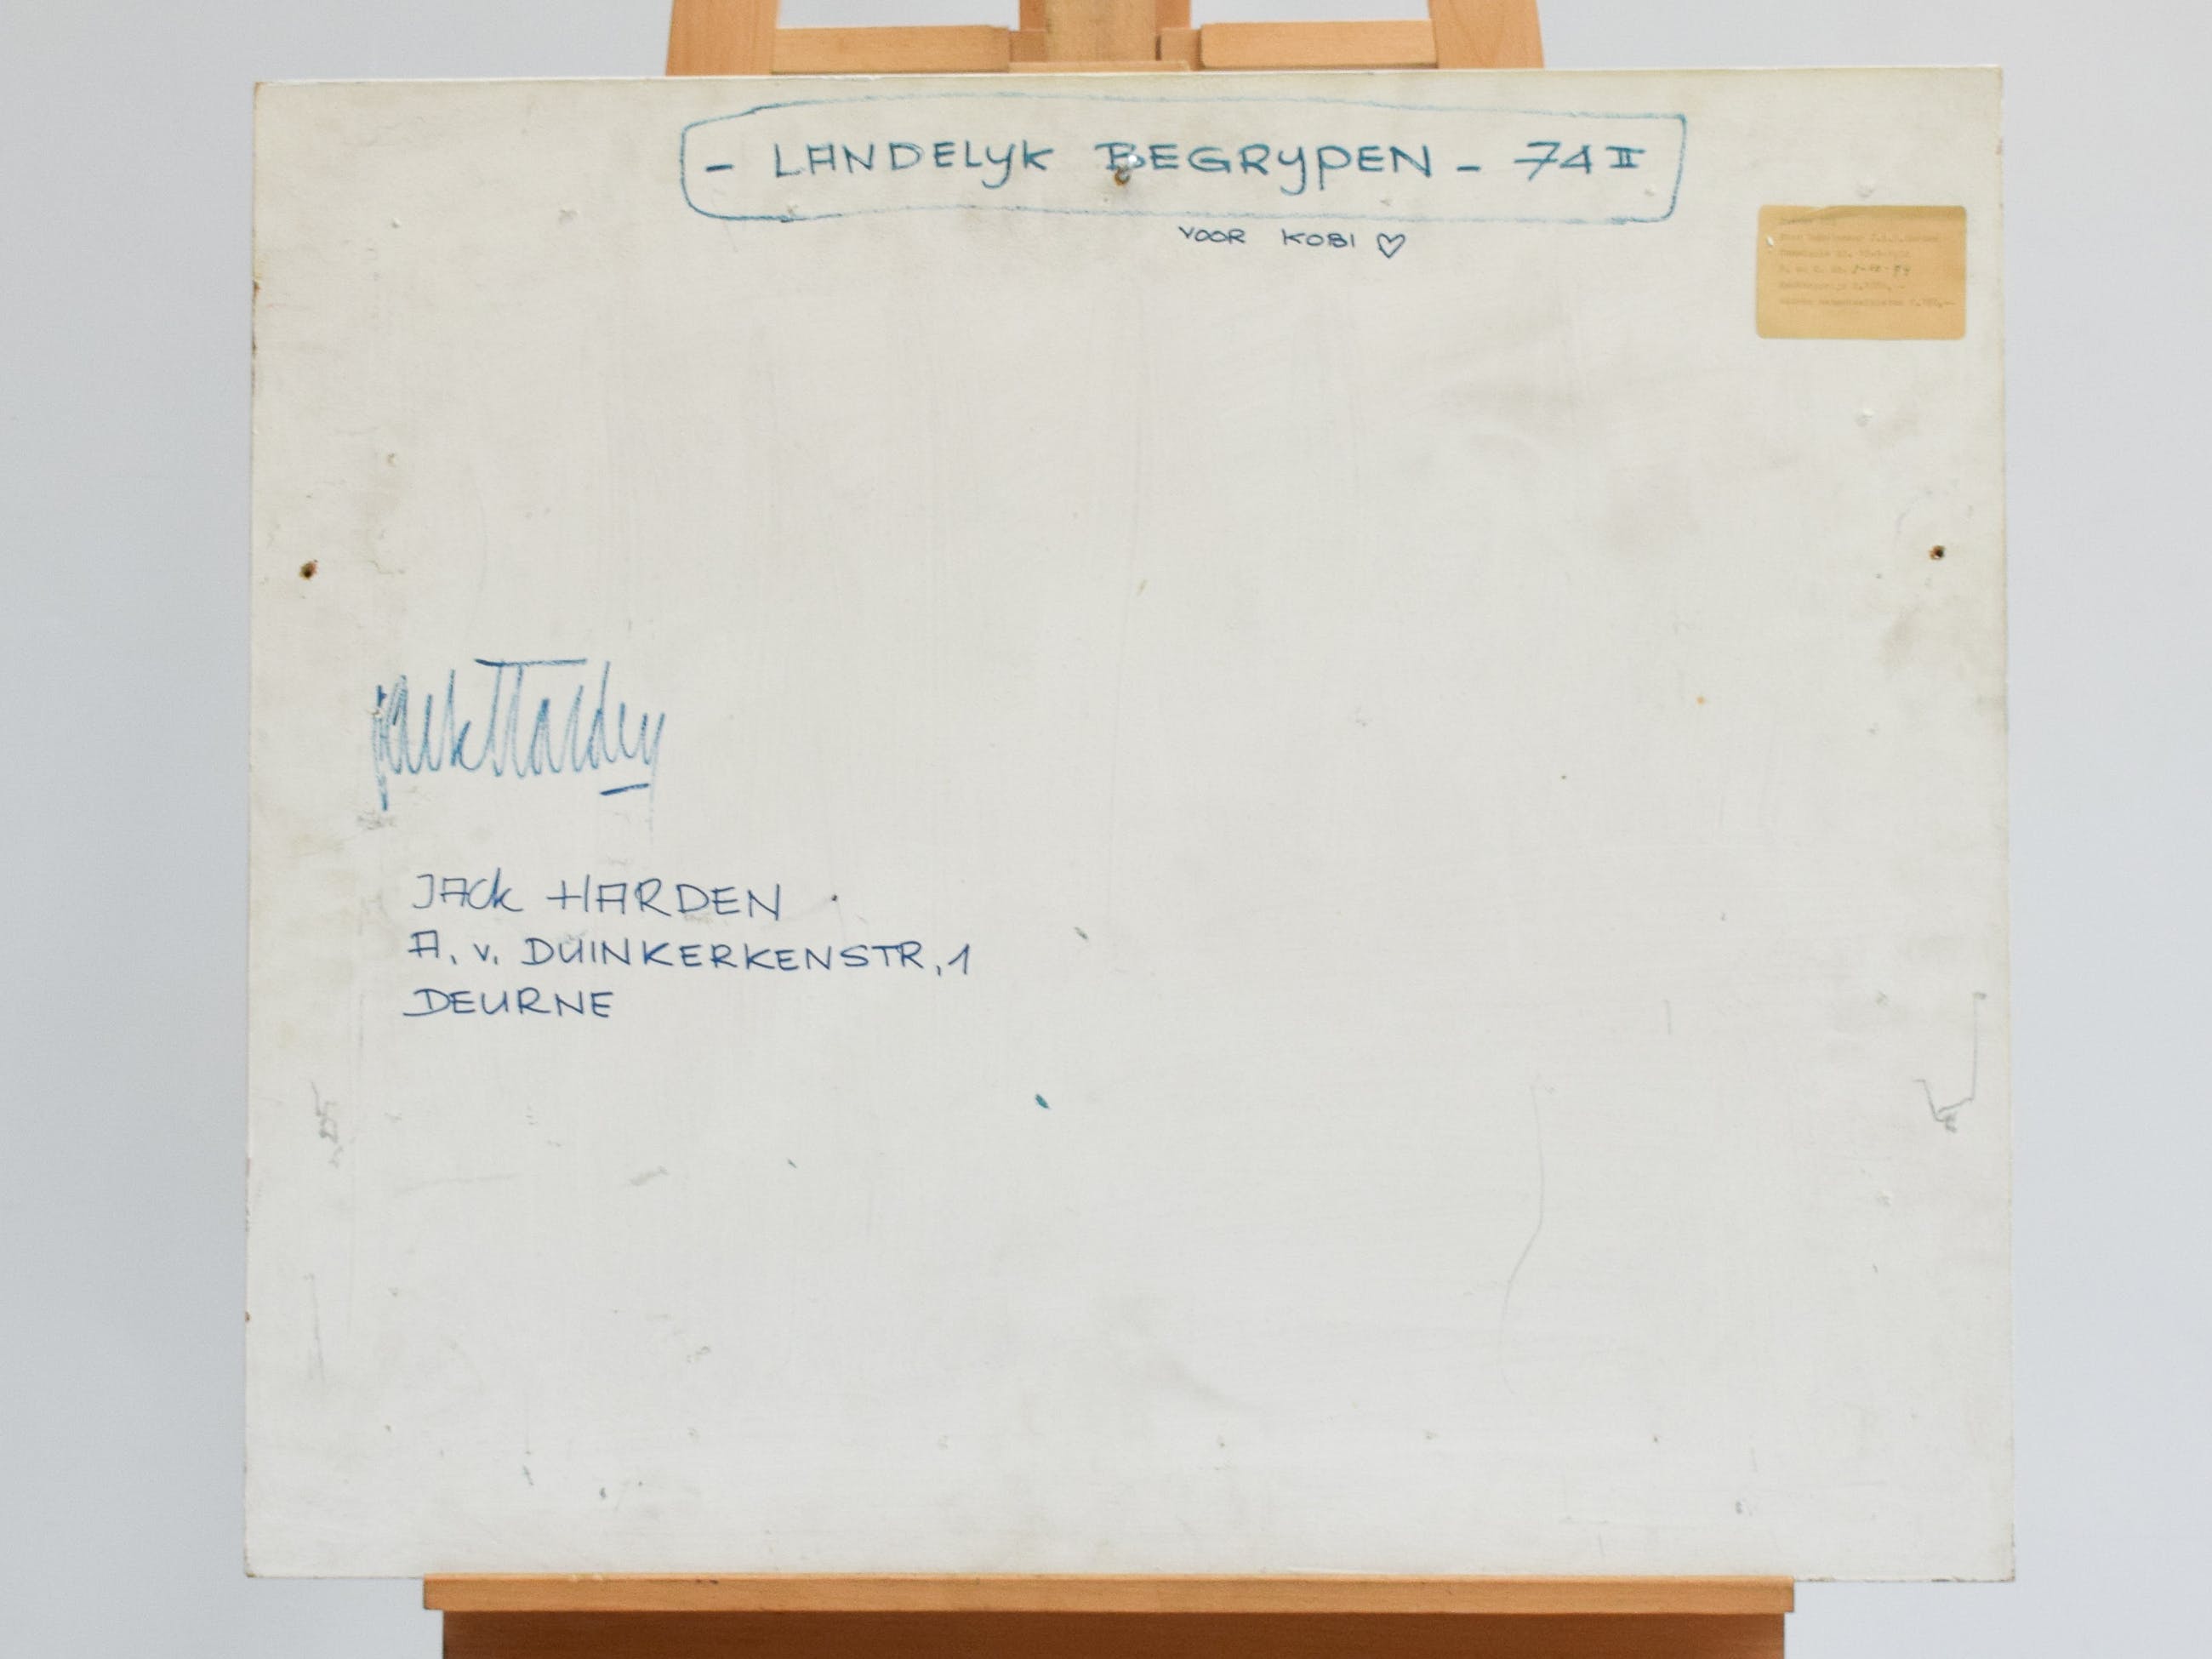 - LANDELYK BEGRYPEN - 74 II
VOOR KOBI ♡
Jack Harden
JACK HARDEN
A. v. DUINKERKENSTR, 1
DEURNE